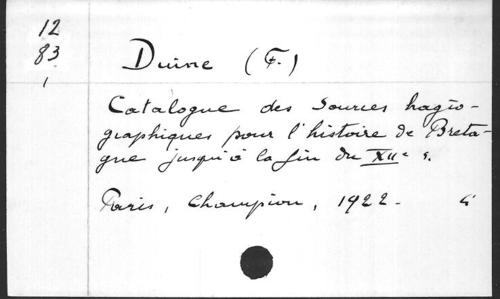 12
83
1
Duine (F.)
Catalogue des Sources hagio-
graphiques pour l'histoire de Breta-
gne jusqu'à la fin du XIIe s.
Paris, Champion, 1922.